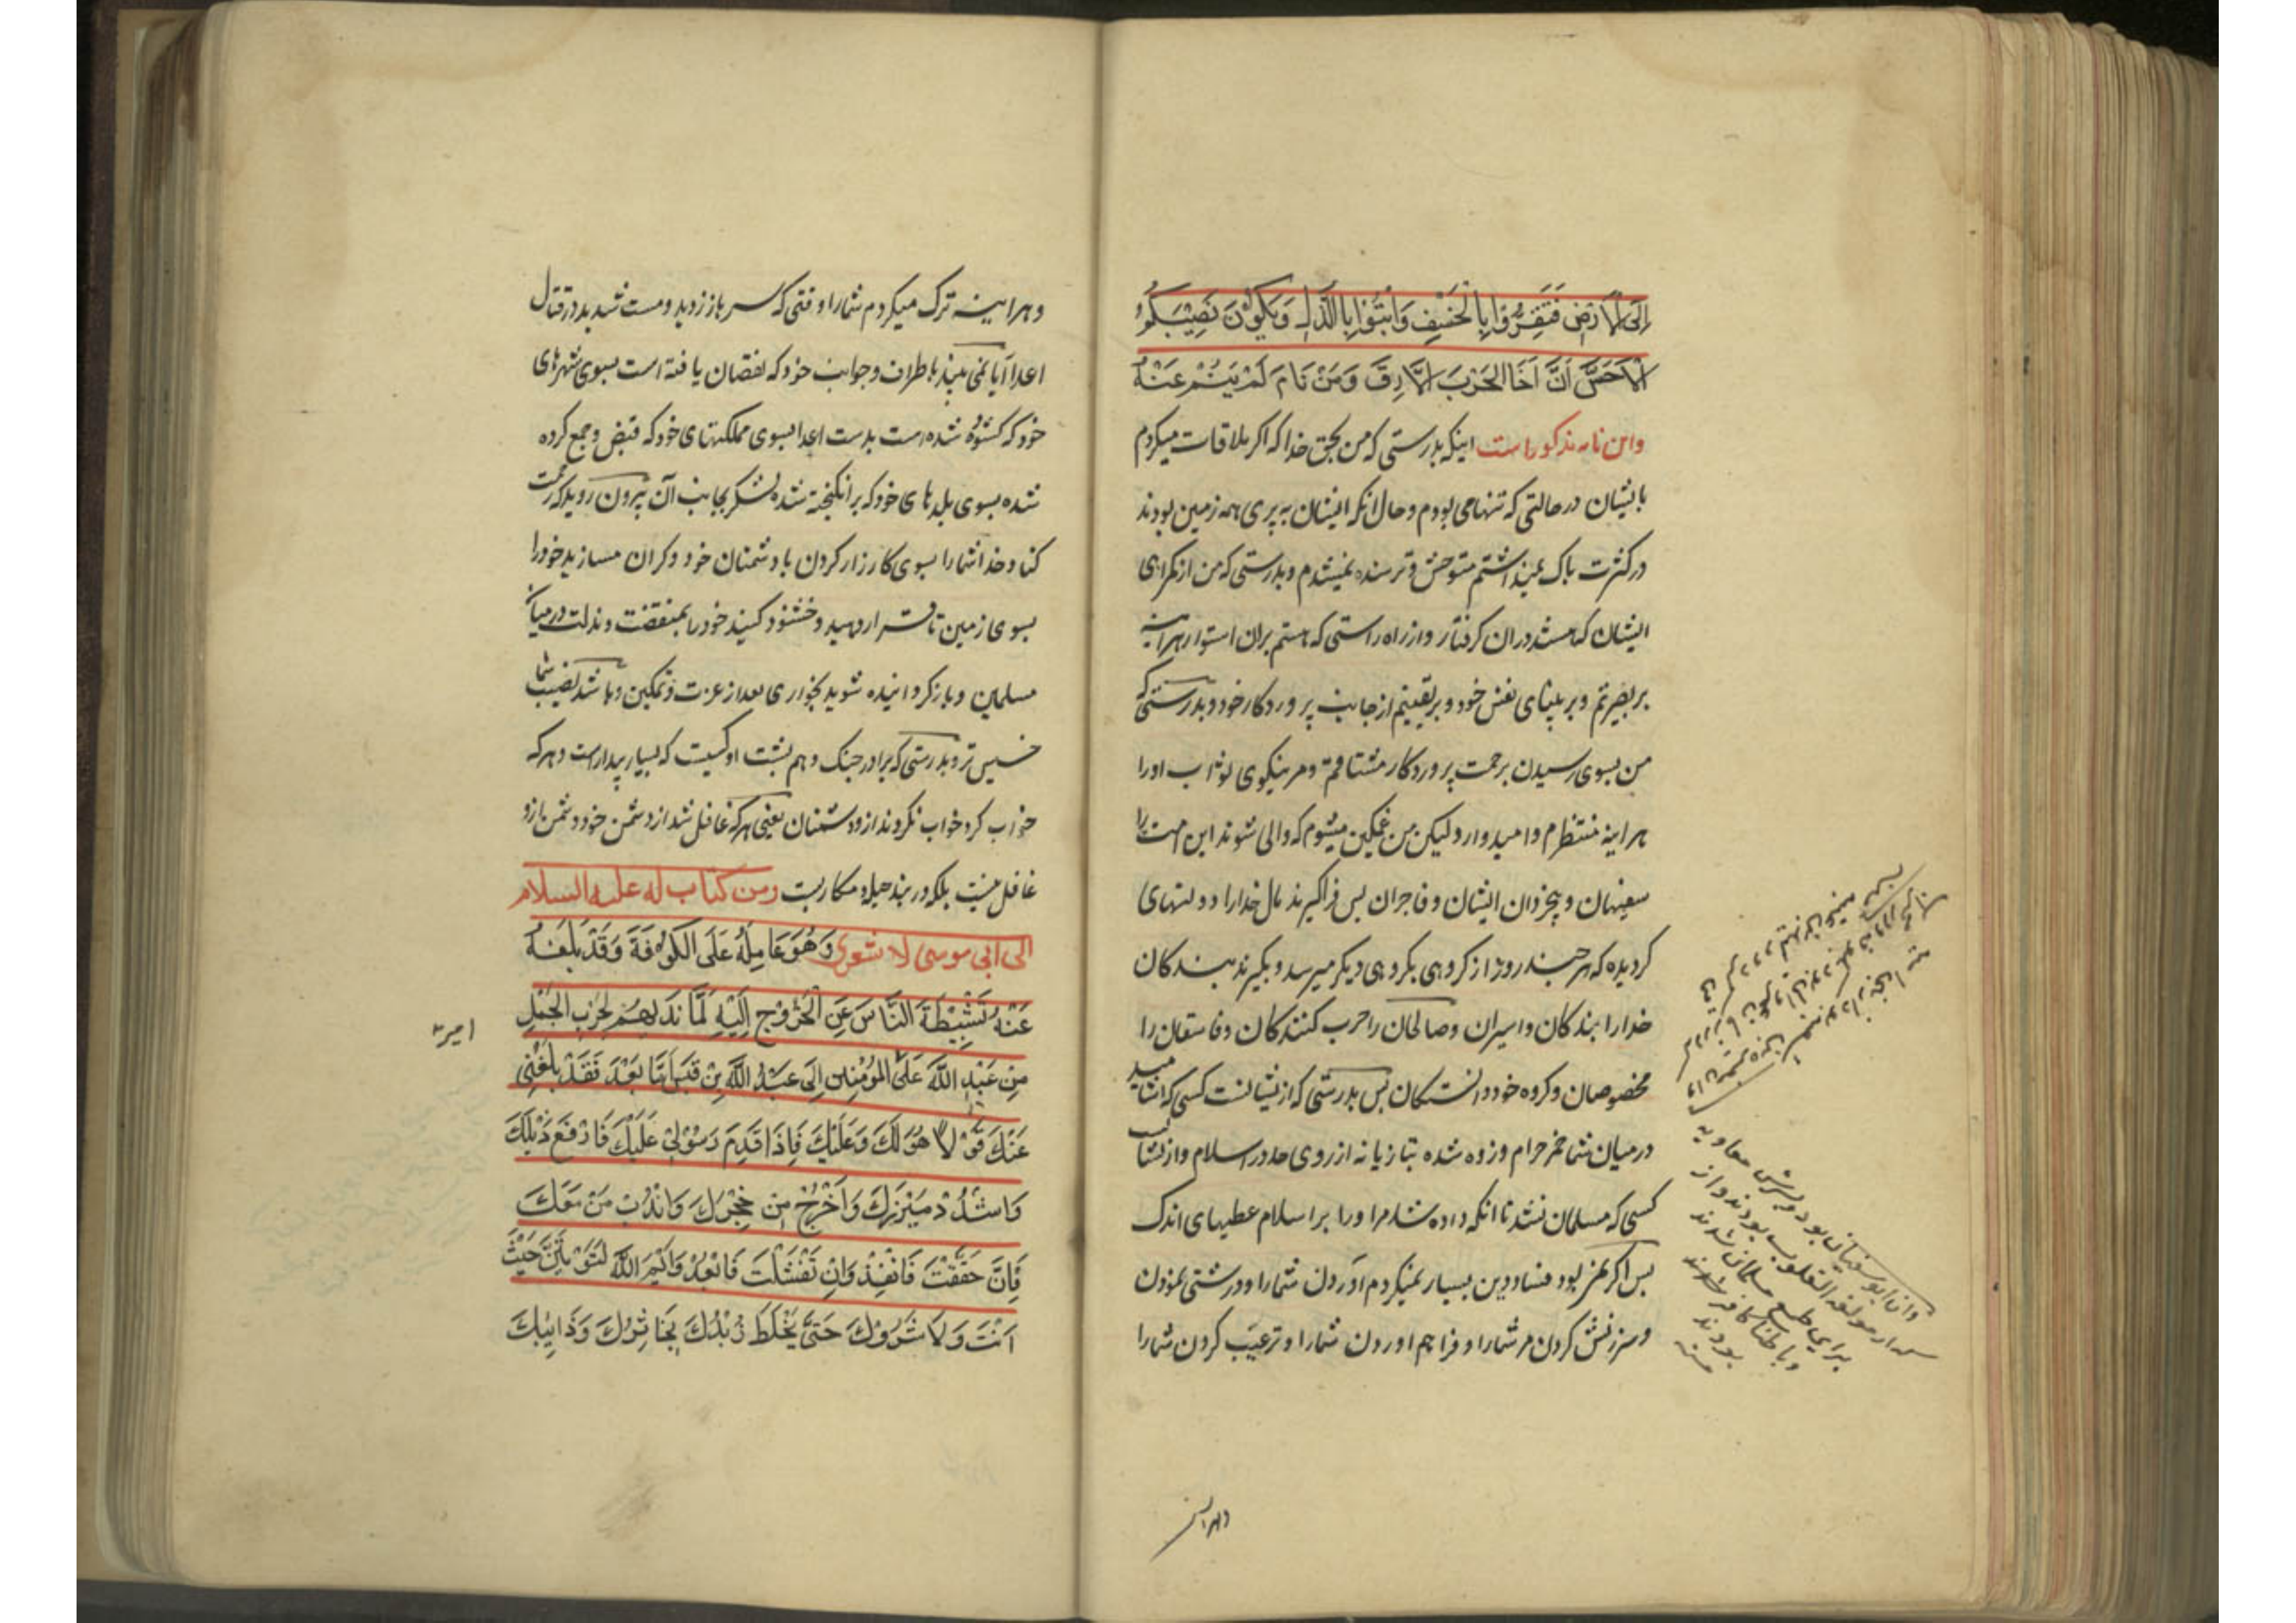 إِلَى الْأَرْضِ فَتُقِرُّوا بِالْخَسْفِ وَتَبُوءُوا بِالذُّلِّ وَيَكُونَ نَصِيبُكُمُ
الْأَخَسَّ أَنَّ أَخَا الْحَرْبَ الْأَرِقُ وَمَنْ نَامَ لَمْ يُنَمْ عَنْهُ
واین نامه مذکور است اینکه بدرستی که من بحق خدا که اکر ملاقات میکردم
بایشان در حالتی که تنها می بودم و حال انکه ایشان به پری همه زمین بودند
در کثرت باک نمیداشتم متوحش و ترسنده نمیشدم و بدرستی که من از کمراهی
ایشان که هستند در ان کرفتار و از راه راستی که هستم بران استوار هراینه
بر بصیرتم و بر بینائی نفس خود و بر یقینم از جانب پروردکار خود و بدرستی که
من بسوی رسیدن برحمت پروردکار مشتاقم و مر نیکوی ثواب او را
هراینه منتظرم و امیدوار و لیکن من غمکین میشوم که والی شوند این امت را
سفیهان و بیخردان ایشان و فاجران پس فراکیرند مال خدا را دولتهای
کردیده که هر چند روز از کروهی بکروهی دیکر میرسد و بکیرند بندکان
خدا را بندکان و اسیران و صالحان را حرب کنندکان و فاسقان را
مخصوصان و کروه خود دانستکان پس بدرستی که از ایشانست کسی که اشامید
در میان شما خمر حرام و زده شده بتازیانه از روی حد در اسلام و از ایشان
کسی که مسلمان نشد تا انکه داده شد مر او را بر اسلام عطیهای اندک
پس اکر نمی بود فساد دین بسیار نمیکردم آوردن شما را و درشتی نمودن
و سرزنش کردن مر شما را و فراهم اوردن شما را و ترغیب کردن شما را
وان ابوسفیان بود و پسرش معاویه
که از مولفة القلوب بودند و از
برای طمع مسلمان شدند
و باطنا کافر
بودند
وهراینه
وهراینه ترک میکردم شما را وقتی که سر باز زدید و سست شدید در قتال
اعدا آیا نمی بینید باطراف و جوانب خود که نقصان یافته است بسوی شهرهای
خود که کشوده شده است بدست اعدا بسوی مملکتهای خود که قبض و جمع کرده
شده بسوی بلدهای خود که برانکیخته شده لشکر بجانب آن بیرون روید که رحمت
کناد خدا شما را بسوی کارزار کردن با دشمنان خود و کران مسازید خود را
بسوی زمین تا قرار دهید و خشنود کنید خود را بمنقصت و مذلت در میان
مسلمین و بازکردانیده شوید بخواری بعد از عزت و تمکین و باشد نصیب شما
خسیس تر و بدرستی که برادر جنک و هم پشت او کسیست که بسیار بیدار است و هر که
خواب کرد خواب نکردند از و دشمنان یعنی هر که غافل شد از دشمن خود دشمن ازو
غافل نیست بلکه در بند حیله و مکاریست ومن کتاب له علیه السلام
الی ابی موسی الاشعری وَهُوَ عَامِلُهُ عَلَى الْكُوفَةَ وَقَدْ بَلَغَهُ
عَنْهُ تَثْبِيطَهُ النَّاسَ عَنِ الْخُرُوجِ إِلَيْهِ لَمَّا نَدَبَهُمْ لِحَرْبِ الْجَمَلِ
مِنْ عَبْدِ اللَّهِ عَلِيٍّ الْمُؤْمِنِينَ إِلَى عَبْدِ اللَّهِ بْنِ قَيْسٍ أَمَّا بَعْدَ فَقَدْ بَلَغَنِي
امیر
عَنْكَ قَوْلًا هُوَ لَكَ وَعَلَيْكَ فَإِذَا قَدِمَ رَسُولِي عَلَيْكَ فَارْفَعْ ذَيْلَكَ
وَاشْدُدْ مِيزَرَكَ وَاخْرُجْ مِنْ جُحْرِكَ وَانْدُبْ مَنْ مَعَكَ
فَإِنْ حَقَّقْتَ فَانْفُذْ وَإِنْ تَفَشَّلْتَ فَابْعُدْ وَأَيْمُ اللَّهِ لَتُؤْتَيَنَّ حَيْثُ
أَنْتَ وَلَا تُتْرَكَ حَتَّى يُخْلَطَ زُبْدُكَ بِخَاثِرِكَ وَذَائِبُكَ